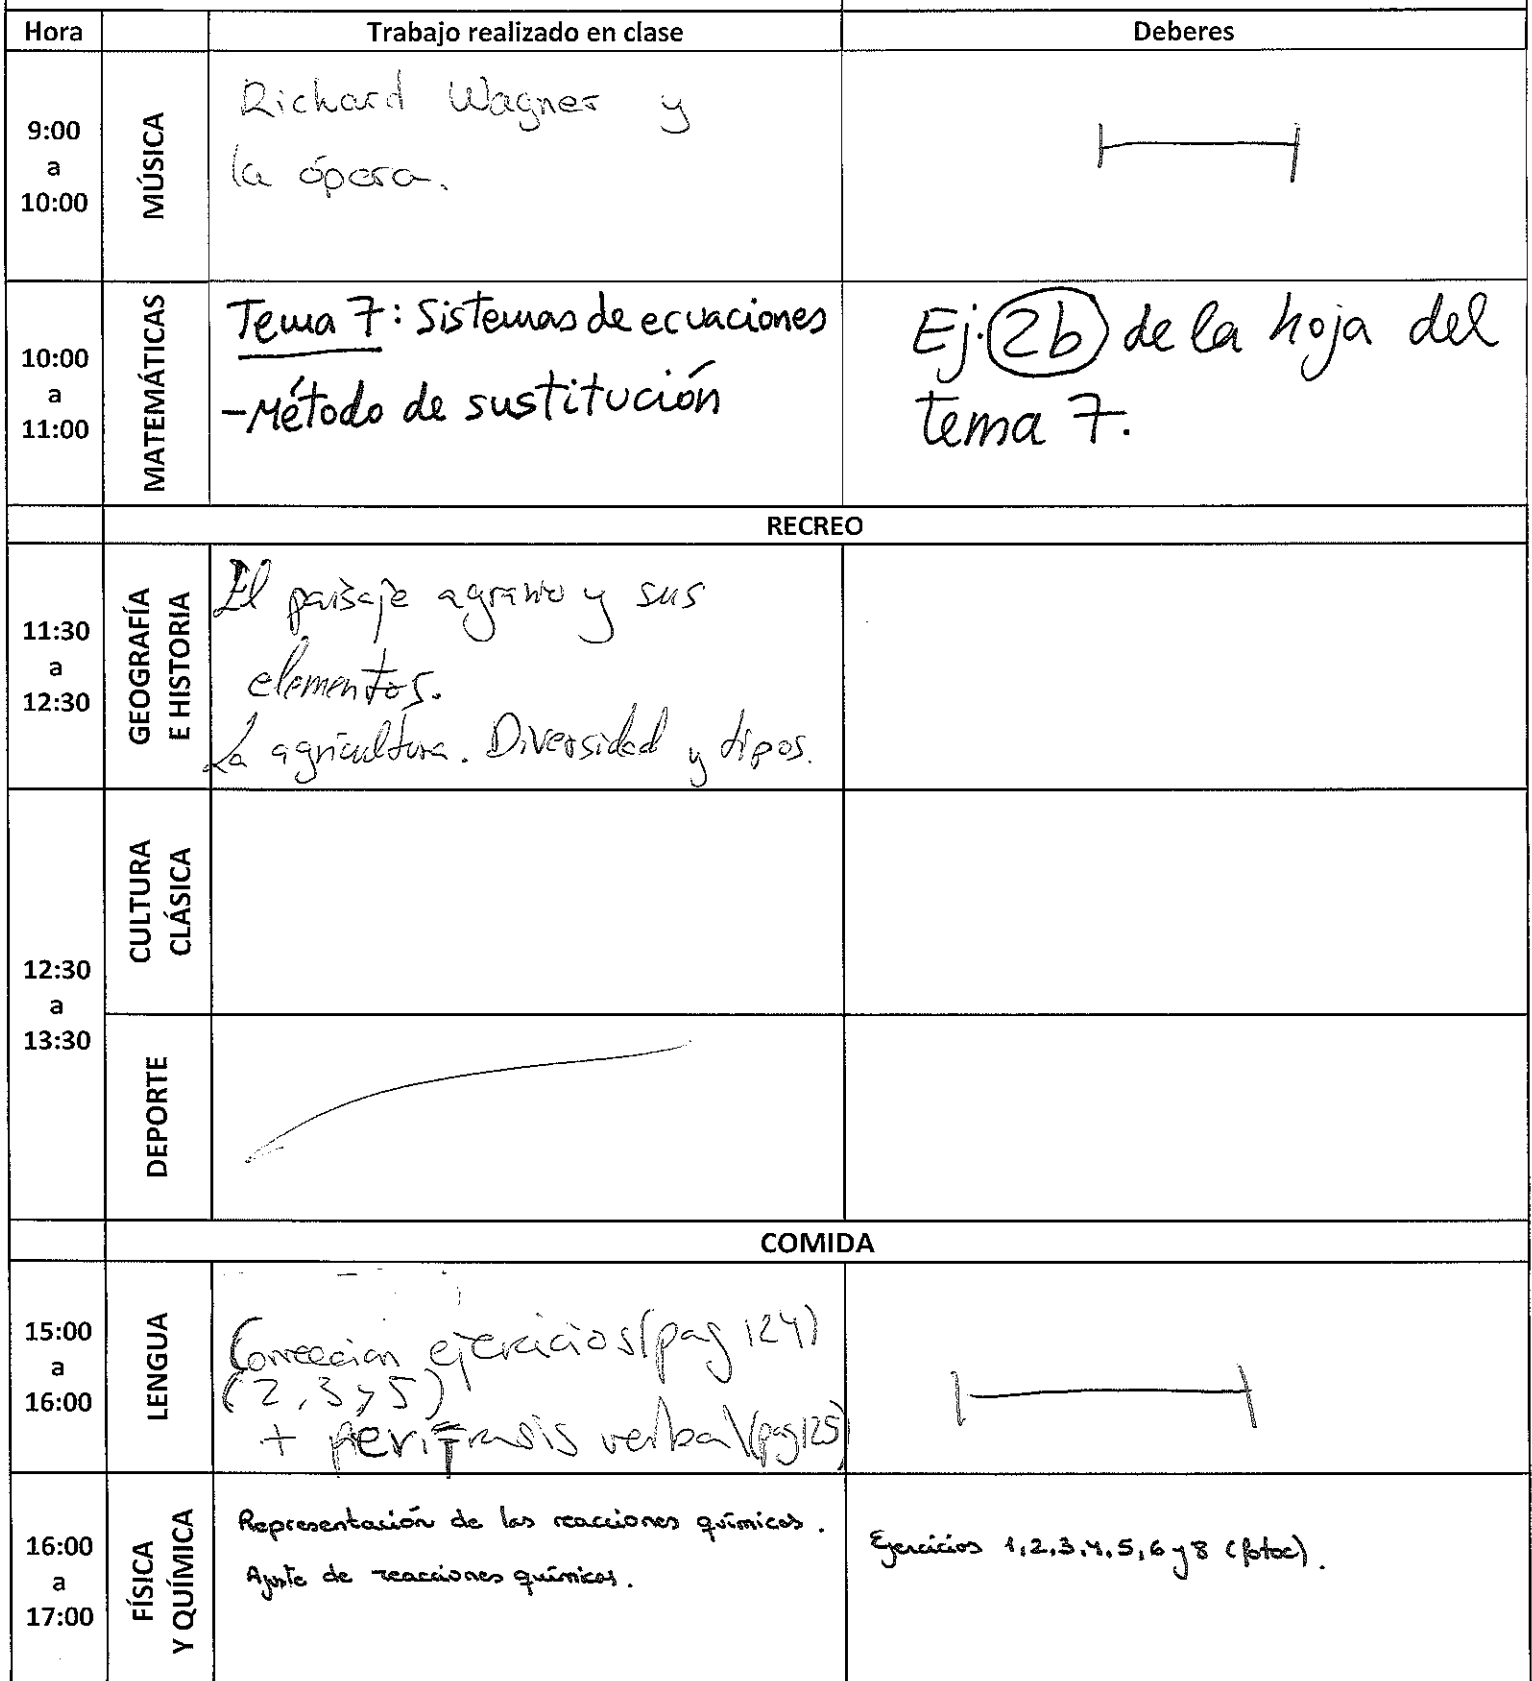 Hora Trabajo realizado en clase Deberes
9:00
a
10:00
MÚSICA
Richard Wagner y
la ópera.
10:00
a
11:00
MATEMÁTICAS
Tema 7: Sistemas de ecuaciones
-Método de sustitución
Ej. 2b de la hoja del
tema 7.
RECREO
11:30
a
12:30
GEOGRAFÍA
E HISTORIA
El paisaje agrario y sus
elementos.
La agricultura. Diversidad y tipos.
12:30
a
13:30
CULTURA
CLÁSICA
DEPORTE
COMIDA
15:00
a
16:00
LENGUA
Correccion ejercicios (pag 124)
(2, 3 y 5)
+ perifrasis verbal (pag 125)
16:00
a
17:00
FÍSICA
Y QUÍMICA
Representación de las reacciones químicas.
Ajuste de reacciones químicas.
Ejercicios 1, 2, 3, 4, 5, 6 y 8 (fotoc).